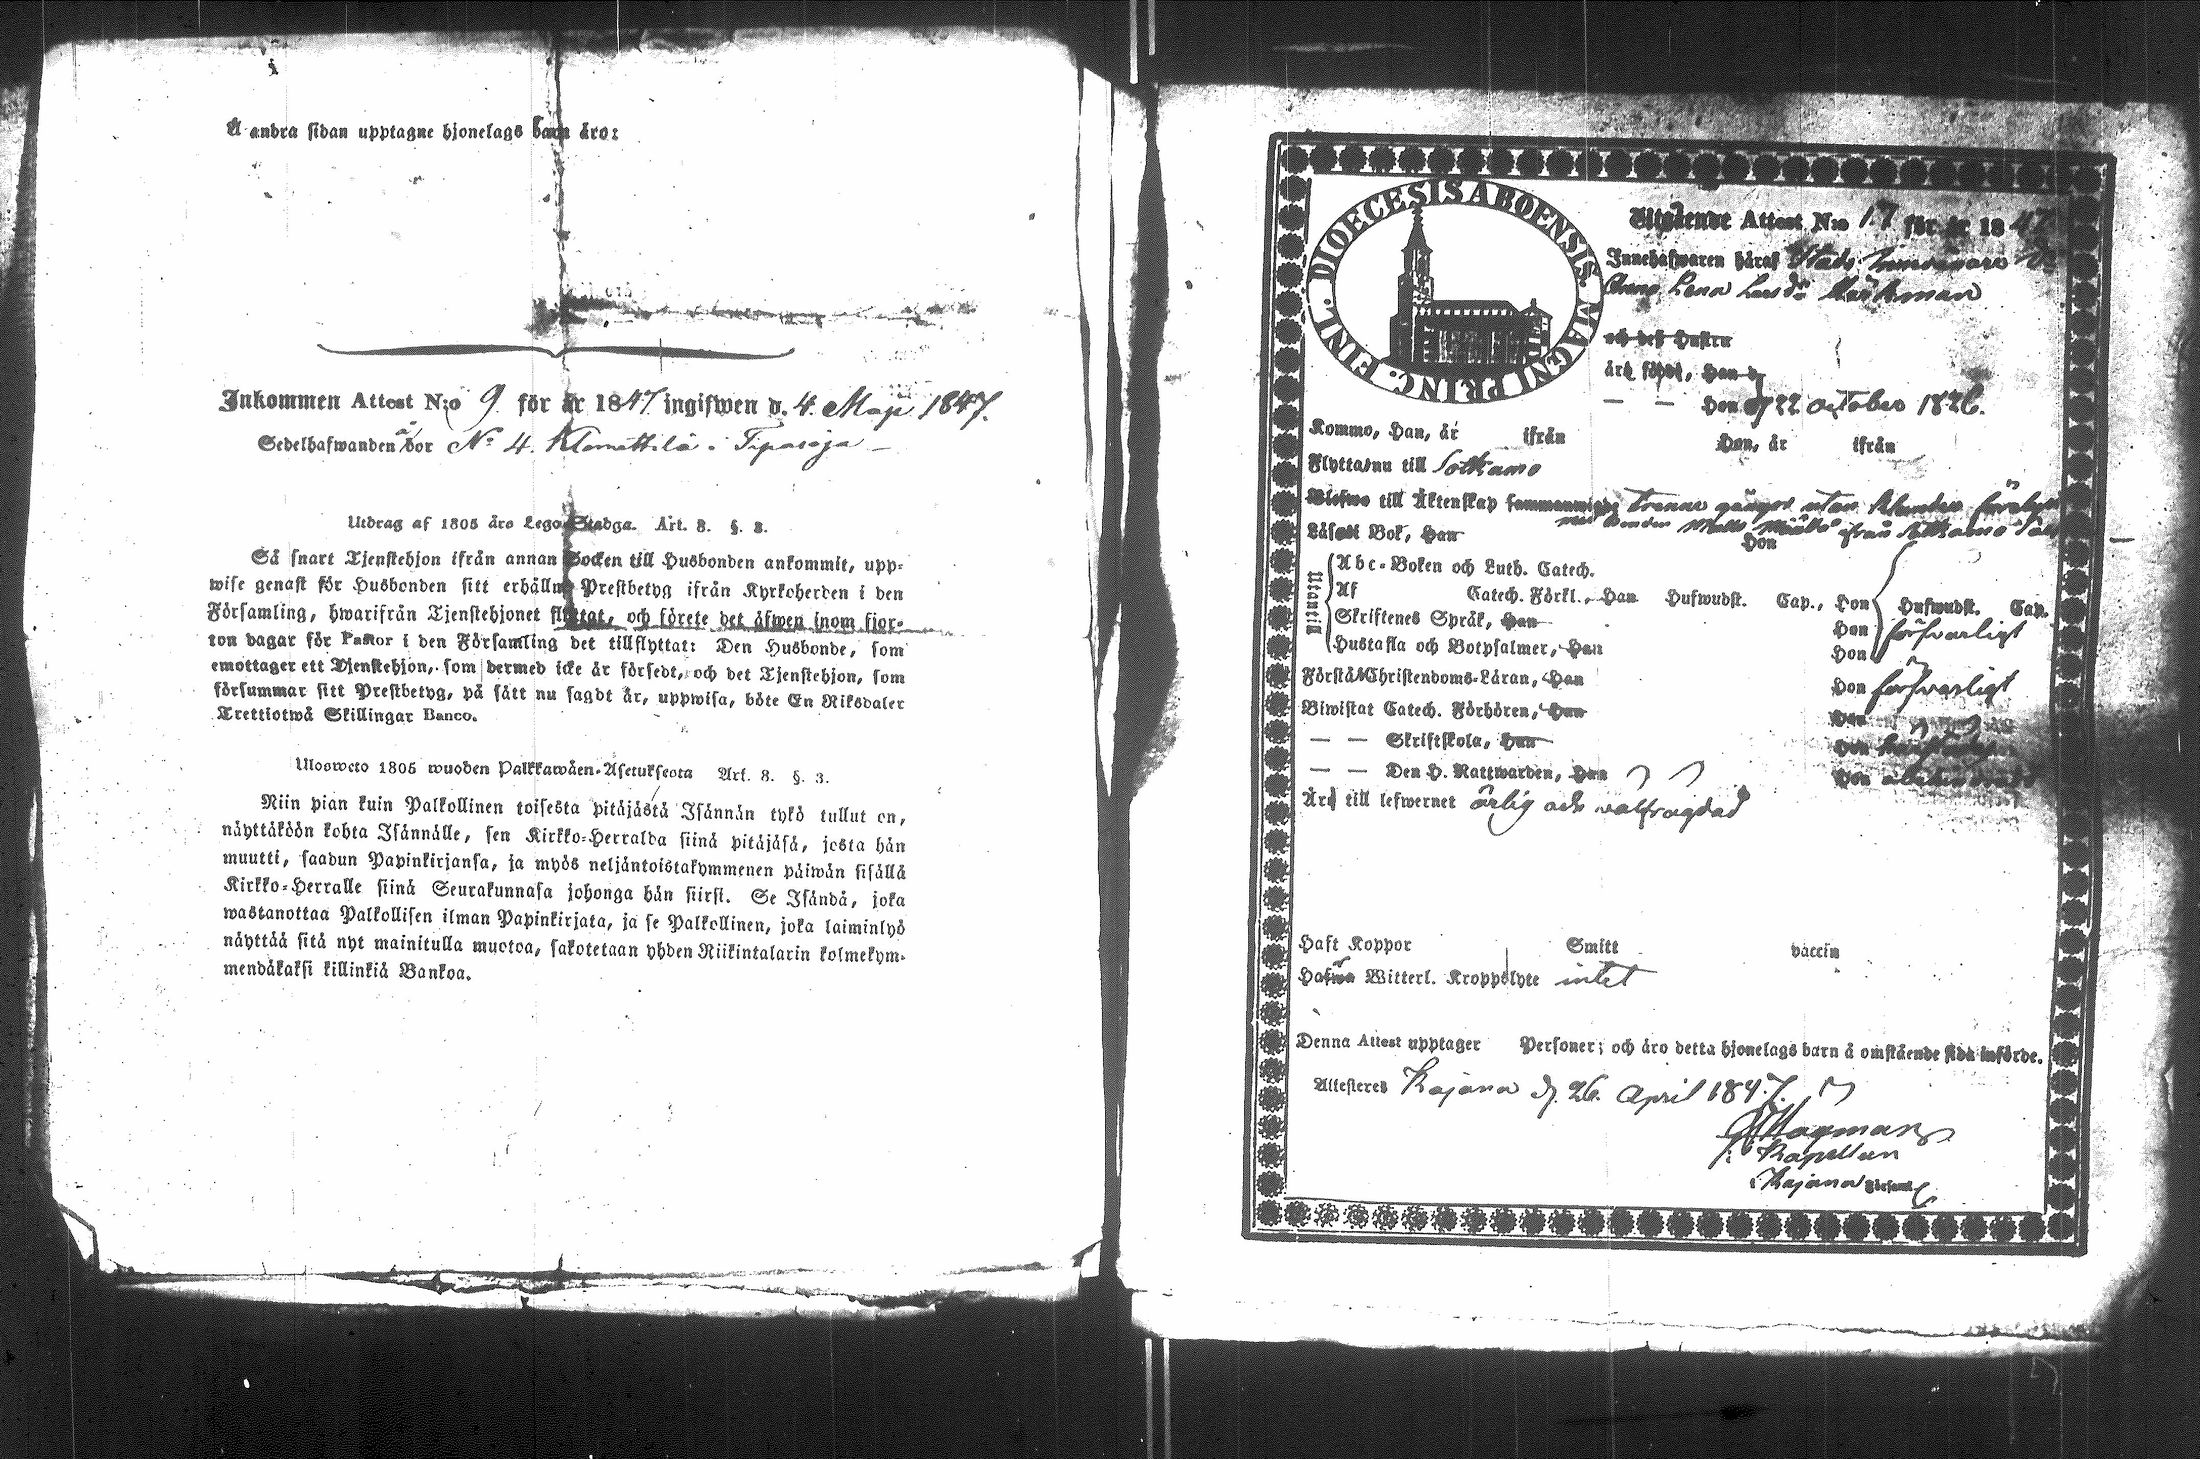 Å andra sidan upptagne hjonelags barn äro:
Inkommen Attest N:o 9 för år 1847 ingifwen d. 4 Maji 1847.
Sedelhafwanden bor N:o 4. Klemettilä i Tipasoja
Utdrag af 1805 års Lego-Stadga. Art. 8. §. 3.
Så snart Tjenstehjon ifrån annan Socken till Husbonden ankommit, upp-
wise genast för Husbonden sitt erhållne Prestbetyg ifrån Kyrkoherden i den
Församling, hwarifrån Tjenstehjonet flyttat, och förete det äfwen inom fjor-
ton dagar för Pastor i den Församling det tillflyttat: Den Husbonde, som
emottager ett Tjenstehjon, som dermed icke är försedt, och det Tjenstehjon, som
försummar sitt Prestbetyg, på sätt nu sagdt är, uppwisa, böte En Riksdaler
Trettiotwå Skillingar Banco.
Ulosweto 1805 wuoden Palkkawäen-Asetuksesta Art. 8. §. 3.
Niin pian kuin Palkollinen toisesta pitäjästä Isännän tykö tullut on,
näyttäköön kohta Isännälle, sen Kirkko-Herralda siinä pitäjäsä, josta hän
muutti, saadun Papinkirjansa, ja myös neljäntoistakymmenen päiwän sisällä
Kirkko-Herralle siinä Seurakunnasa johonga hän siirsi. Se Isändä, joka
wastanottaa Palkollisen ilman Papinkirjata, ja se Palkollinen, joka laiminlyö
näyttää sitä nyt mainitulla muotoa, sakotetaan yhden Riikintalarin kolmekym-
mendäkaksi killinkiä Bankoa.
FINL. DIOECESIS ABOENSIS. MAGNI PRINC.
Utgående Attest N:o 17 för år 1847
Innehafwaren häraf Stads Innevånare D:
Anna Lena Larsd:r Markman
och dess Hustru
äro född, Han d
— — Hon d 22 october 1826.
Kommo, Han, år ifrån Hon, år ifrån
Flytta nu till Sotkamo
till Äktenskap trenne gånger utan klander
från Sotkamo
Läser i Bok, Han Hon
Utantill
Abc-Boken och Luth. Catech.
Af Catech. Förkl., Han Hufwudst. Cap., Hon Hufwudst. Cap.
Skriftenes Språk, Han Hon försvarligt
Hustafla och Botpsalmer, Han Hon
Förstå Christendoms-Läran, Han Hon försvarligt
Biwistat Catech. Förhören, Han Hon
— — Skriftskola, Han Hon
— — Den H. Nattwarden, Han Hon
Äro till lefwernet ärlig och välfrägdad
Haft Koppor Smitt vaccin
Witterl. Kroppslyte intet
Denna Attest upptager Personer; och äro detta hjonelags barn å omstående sida införde.
Attesteres Kajana d. 26. April 1847.
Hagman
Kapellan
i Kajana Församl